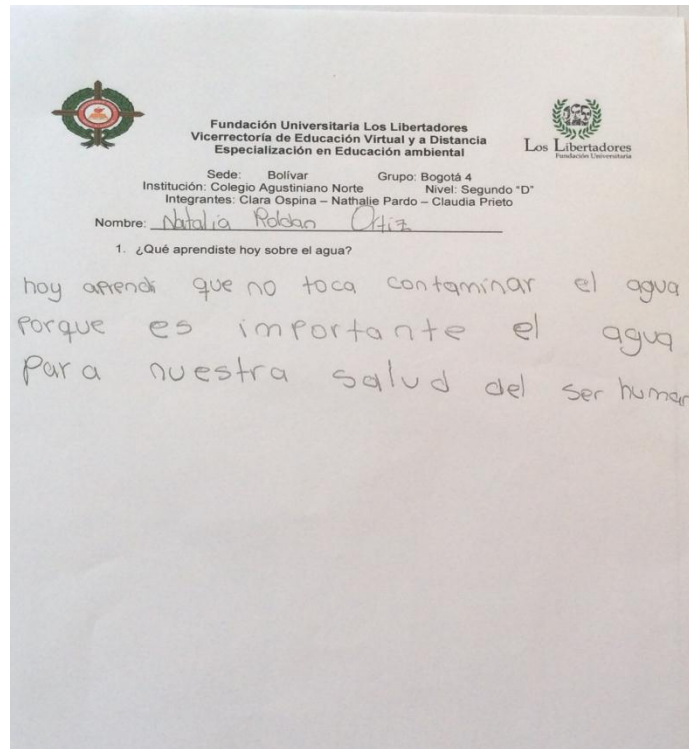 Fundación Universitaria Los Libertadores
Vicerrectoría de Educación Virtual y a Distancia
Especialización en Educación ambiental
Los Libertadores
Fundación Universitaria
Sede: Bolívar Grupo: Bogotá 4
Institución: Colegio Agustiniano Norte Nivel: Segundo "D"
Integrantes: Clara Ospina – Nathalie Pardo – Claudia Prieto
Nombre: Natalia Roldan Ortiz
1. ¿Qué aprendiste hoy sobre el agua?
hoy aprendi que no toca contaminar el agua
porque es importante el agua
Para nuestra salud del ser human